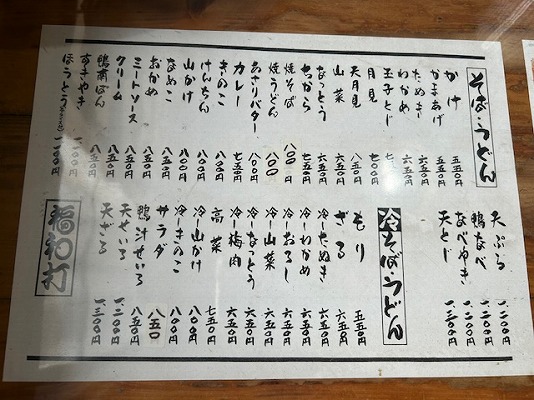 そば・うどん
かけ 五五〇円
かまあげ 五五〇円
たぬき 六五〇円
わかめ 六五〇円
玉子とじ
月見 七〇〇円
天月見 八五〇円
山菜 六五〇円
なっとう 六五〇円
ちから 七五〇円
焼そば 八〇〇円
焼うどん 八〇〇
あさりバター 八〇〇円
カレー 七五〇円
きのこ 八〇〇円
けんちん 八〇〇円
山かけ 八〇〇円
なめこ 八五〇円
おかめ 八五〇円
ミートソース 八五〇円
クリーム 八五〇円
鴨南ばん 八五〇円
すきやき 一、二〇〇円
ほうとう 一、二〇〇円
天ぷら 一、二〇〇円
鴨なべ 一、二〇〇円
なべやき 一、二〇〇円
天とじ 一、三〇〇円
冷そば・うどん
もり 五五〇円
ざる 六五〇円
冷-たぬき 六五〇円
冷-わかめ 六五〇円
冷-おろし 六五〇円
冷-山菜 六五〇円
冷-なっとう 六五〇円
冷-梅肉 六五〇円
高菜 七五〇円
冷-山かけ 八〇〇円
冷-きのこ 八〇〇円
サラダ 八五〇
鴨汁せいろ 八五〇円
天せいろ 一、二〇〇円
天ざる 一、三〇〇円